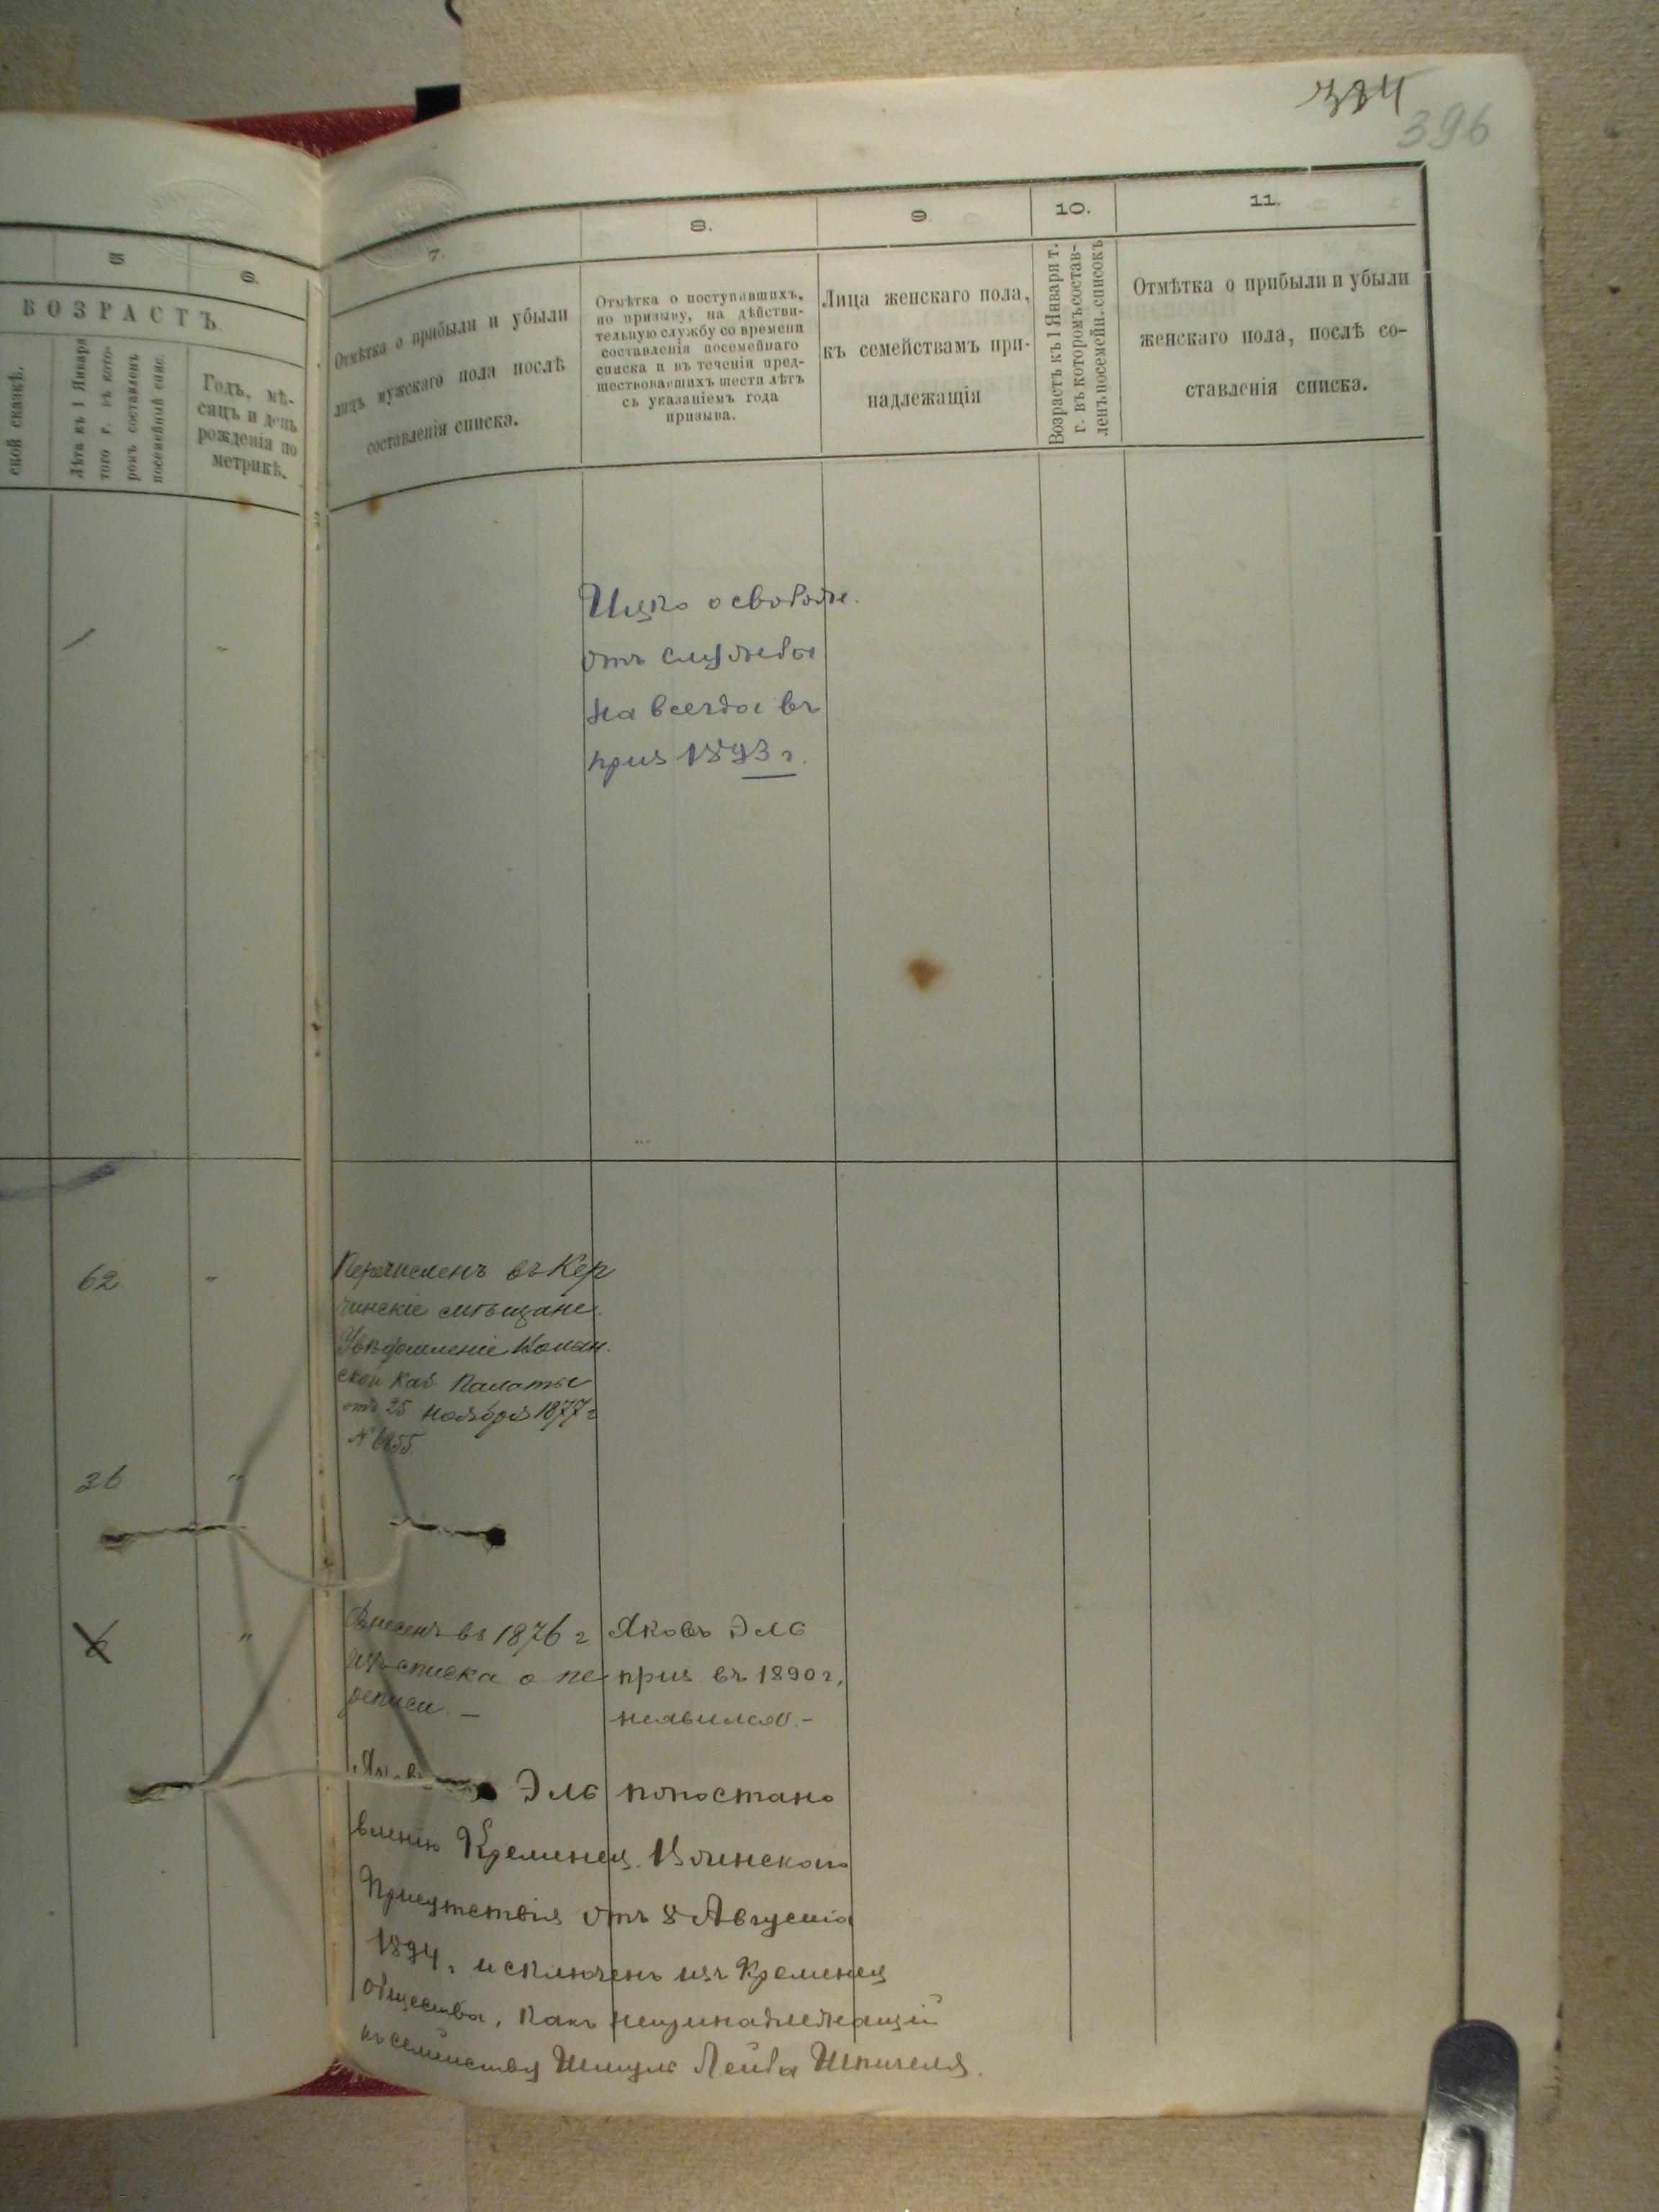 384
396
5
6.
7.
8.
9
10.
11.
ВОЗРАСТЪ.
ской сказкѣ.
Лѣта къ 1 Января
того г. въ кото-
ромъ составленъ
посемейный спис.
Годъ, мѣ-
сяцъ и день
рожденія по
метрикѣ.
Отмѣтка о прибыли и убыли
лицъ мужскаго пола послѣ
составленія списка.
Отмѣтка о поступившихъ,
по призыву, на дѣйстви-
тельную службу со времени
составленія посемейнаго
списка и въ теченіи пред-
шествовавшихъ шести лѣтъ
съ указаніемъ года
призыва.
Лица женскаго пола,
къ семействамъ при-
надлежащія
Возрастъ къ 1 Января т.
г. въ которомъ состав-
ленъ посемейн. списокъ
Отмѣтка о прибыли и убыли
женскаго пола, послѣ со-
ставленія списка.
Ицко освобожде.
отъ службы
на всегда въ
приз 1893 г.
62 "
Перечисленъ въ Кер
чинскіе мѣщане.
Увѣдомленіе
ской Каз Палаты
отъ 25 Ноября 1877 г
№ 6855
36 "
6 "
Внесенъ въ 1876 г
изъ списка о пе
реписи. –
Яковъ Эль
приз въ 1890 г,
неявился. –
Эль по постано
вленію Кременец. Воинскаго
Присутствія отъ 8 Августа
1894 г исключенъ изъ Кременец
общества, какъ непринадлежащій
къ семейству Шмуль Лейба Шпигеля.